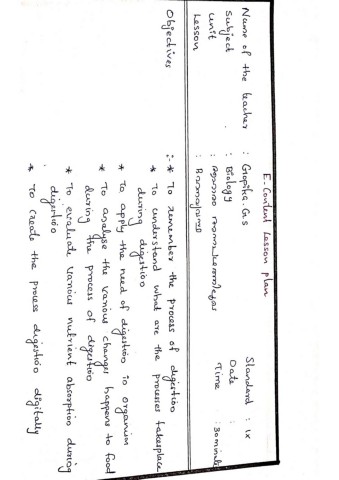 E-Content Lesson plan
Name of the teacher : Gopika.G.S Standard : IX
Subject : Biology Date :
Unit : Time : 30 minute
Lesson :
Objectives :- * To remember the process of digestion
* To understand what are the processes takesplace
during digestion
* To apply the need of digestion in organism
* To analyse the various changes happens to food
during the process of digestion
* To evaluate various nutrient absorption during
digestion
* To create the process digestion digitally